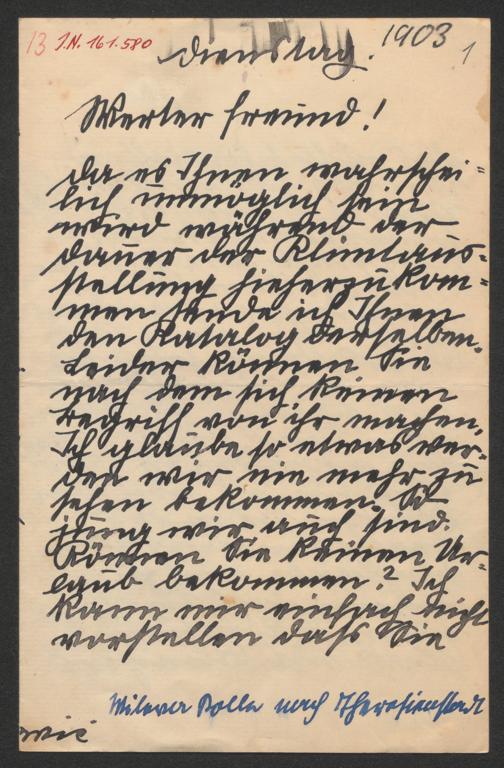 13 J.N. 161.580
1903
1
Dienstag.
Werter Freund!
Da es Ihnen wahrschei-
lich unmöglich sein
wird während der
Dauer der Klimtaus-
stellung hieherzukom-
men sende ich Ihnen
den Katalog derselben.
Leider können Sie
nach dem sich keinen
Begriff von ihr machen.
Ich glaube so etwas wer-
den wir nie mehr zu
sehen bekommen. So
jung wir auch sind.
Können Sie keinen Ur-
laub bekommen? Ich
kann mir einfach nicht
vorstellen dass Sie
Mileva Rolle nach Theresienstadt
wie